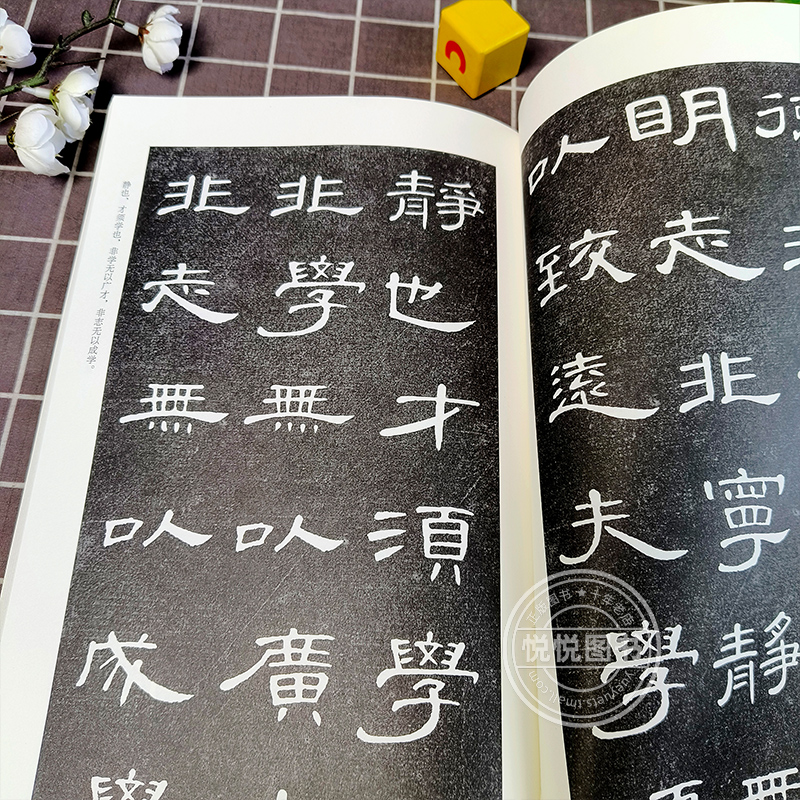 明志非寧靜無
以致遠夫學
靜也才須學
非學無以廣
非志無以成學
静也，才须学也，非学无以广才，非志无以成学。
正版图书★十年老店
悦悦图书
yueyuets.tmall.com